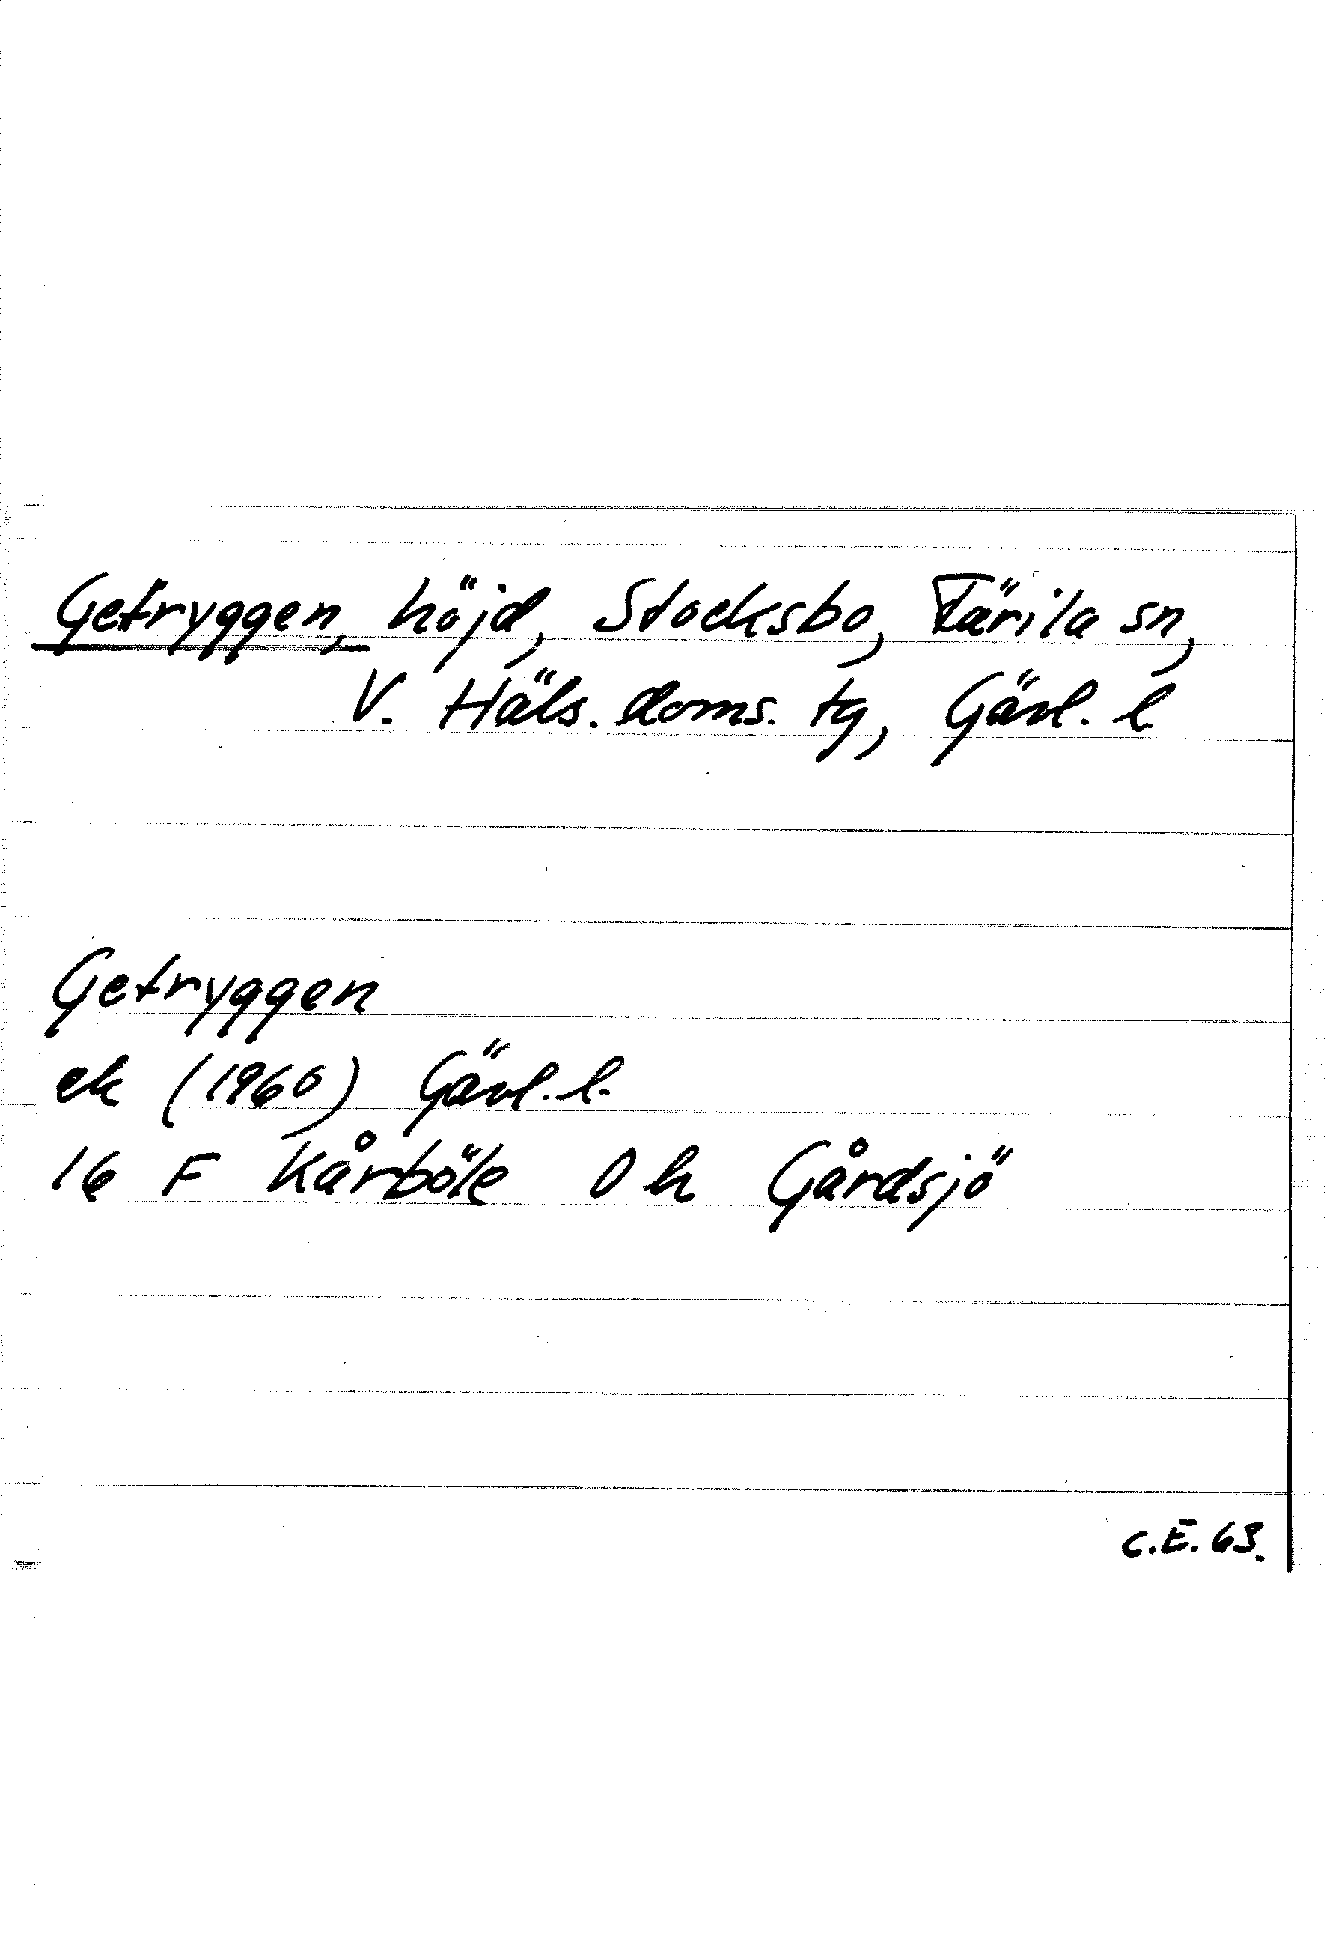 Getryggen, höjd, Stocksbo, Färila sn,
V. Häls. doms. tg, Gävl. l
Getryggen
ek (1960) Gävl. l.
16 F Kårböle 0 h Gårdsjö
C.E. 63.